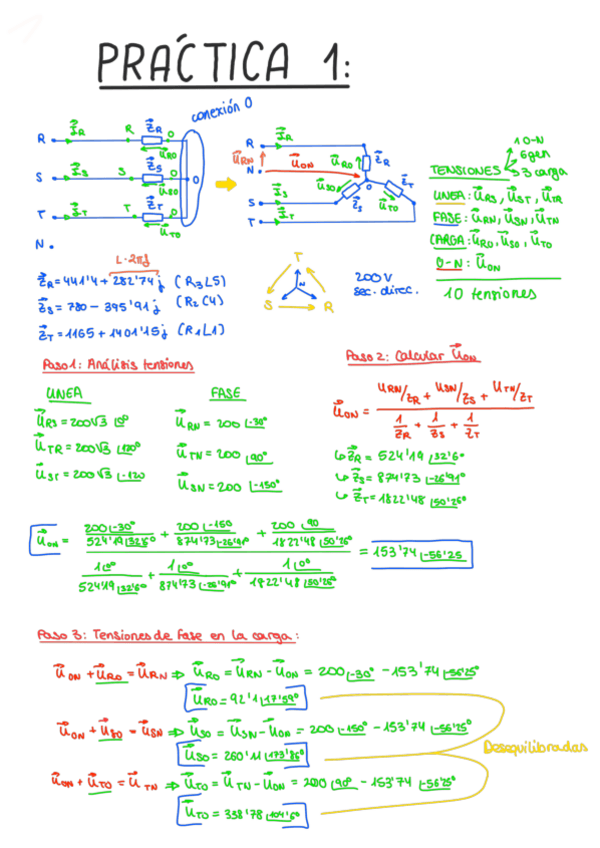 PRÁCTICA 1:
conexión 0
R I⃗R R Z⃗R 0 U⃗RO
S I⃗S S Z⃗S 0 U⃗SO 0
T I⃗T T Z⃗T 0 U⃗TO
N
R I⃗R
U⃗RN U⃗ON U⃗RO Z⃗R
N 0 Z⃗T
S I⃗S U⃗SO Z⃗S U⃗TO
T I⃗T
TENSIONES 10-N
6gen
3 carga
LINEA: U⃗RS, U⃗ST, U⃗TR
FASE: U⃗RN, U⃗SN, U⃗TN
CARGA: U⃗RO, U⃗SO, U⃗TO
O-N: U⃗ON
10 tensiones
L·2πf
Z⃗R = 441'4 + 282'74j (R3L5)
Z⃗S = 780 - 395'91j (R2C4)
Z⃗T = 1165 + 1401'15j (R1L1)
T
N
S R
200V
sec. direc.
Paso 1: Análisis tensiones
LINEA FASE
U⃗RS = 200√3 |0° U⃗RN = 200 |-30°
U⃗TR = 200√3 |120° U⃗TN = 200 |90°
U⃗ST = 200√3 |-120 U⃗SN = 200 |-150°
Paso 2: Calcular U⃗ON
U⃗ON = (URN/Z⃗R + USN/Z⃗S + UTN/Z⃗T) / (1/Z⃗R + 1/Z⃗S + 1/Z⃗T)
↳ Z⃗R = 524'19 |32'6°
↳ Z⃗S = 874'73 |-26'91°
↳ Z⃗T = 1822'48 |50'26°
U⃗ON = (200|-30°/524'19|32'6° + 200|-150/874'73|-26'91° + 200|90/1822'48|50'26°) / (1|0°/524'19|32'6° + 1|0°/874'73|-26'91° + 1|0°/1822'48|50'26°) = 153'74 |-56'25
Paso 3: Tensiones de fase en la carga:
U⃗ON + U⃗RO = U⃗RN ⇒ U⃗RO = U⃗RN - U⃗ON = 200 |-30° - 153'74 |-56'25°
U⃗RO = 92'1 |17'59°
U⃗ON + U⃗SO = U⃗SN ⇒ U⃗SO = U⃗SN - U⃗ON = 200 |-150° - 153'74 |-56'25°
U⃗SO = 260'11 |173'86°
Desequilibradas
U⃗ON + U⃗TO = U⃗TN ⇒ U⃗TO = U⃗TN - U⃗ON = 200 |90° - 153'74 |-56'25°
U⃗TO = 338'78 |104'6°